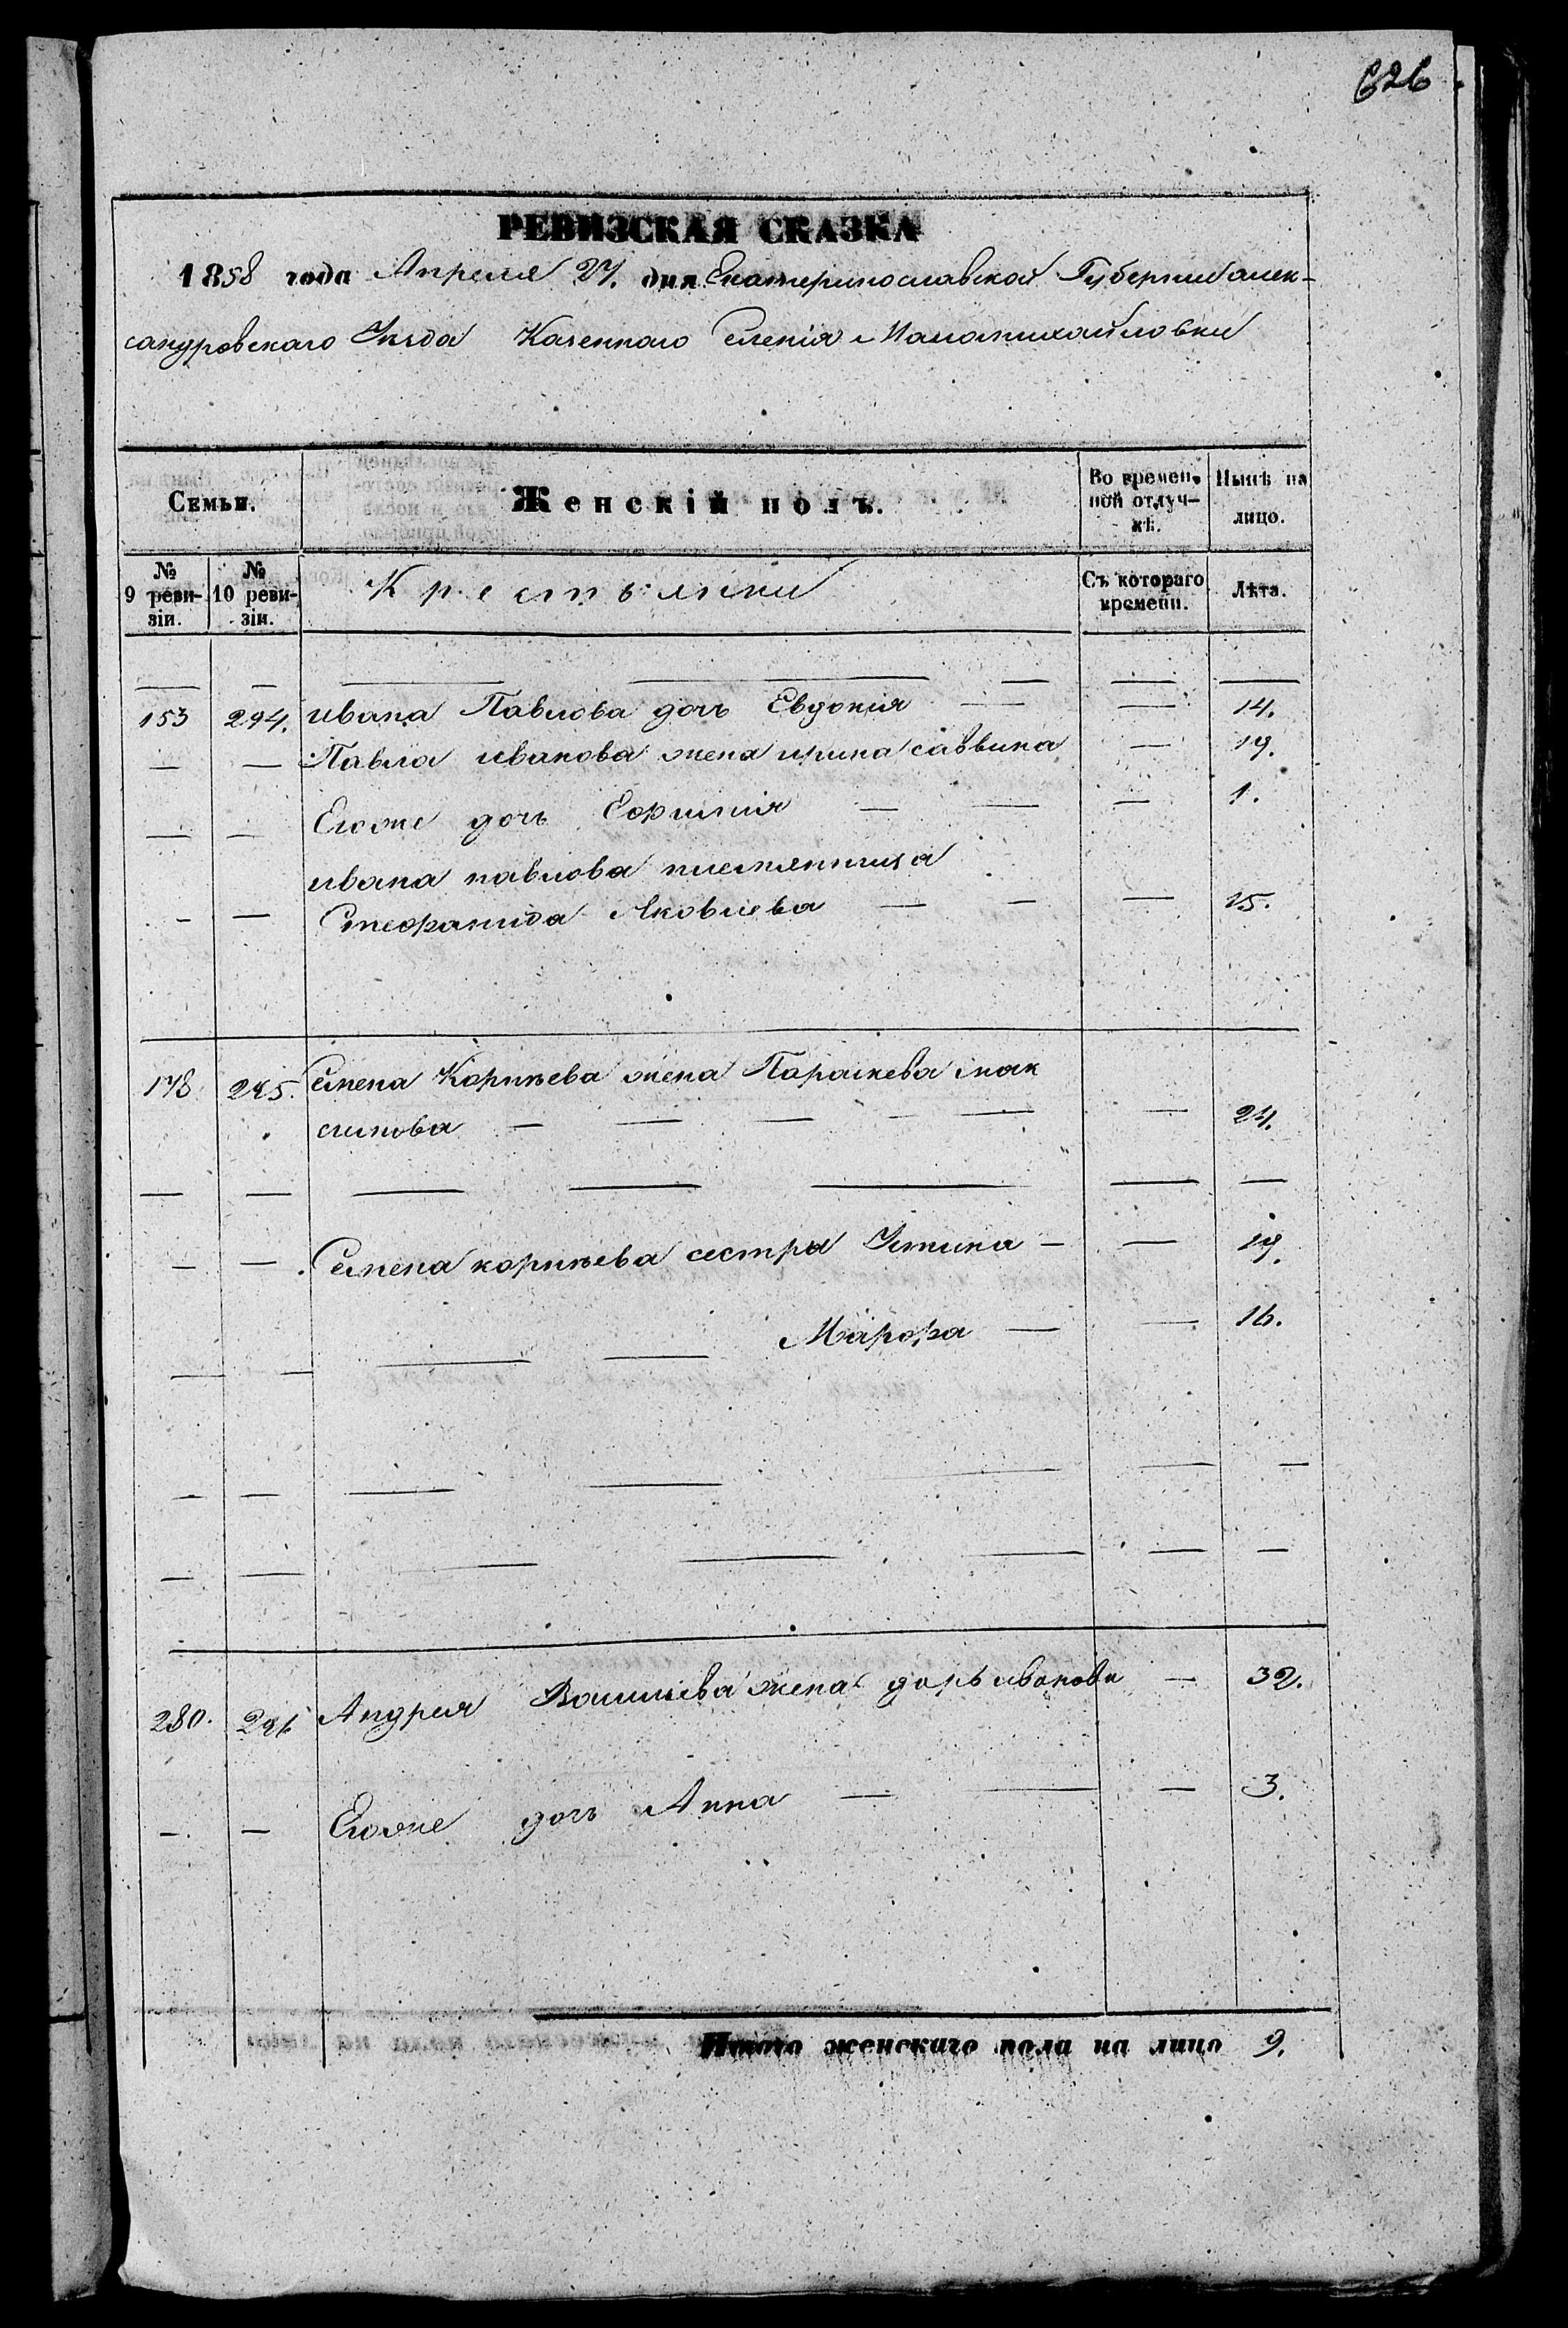 626
РЕВИЗСКАЯ СКАЗКА
1858 года Апреля 27. дня Екатеринославской Губернии алек-
сандровскаго Уѣзда Казеннаго Селенія Маломихайловки
Семьи. Женскій полъ. Во времен- ной отлуч- кѣ. Нынѣ на лицо.
№ 9 реви- зіи. № 10 реви- зіи. Крестьянки Съ котораго времени. Лѣта.
— — — — — — —
153 294. ивана Павлова дочь Евдокия — — 14.
— — Павла иванова жена ирина саввина — 19.
— — Егоже дочь Ефимия — — — 1.
ивана павлова племянница
— — Стефанида Яковлева — — — 15.
178 295. Семена Корнѣева жена Параскева мак
симова — — — — — 24.
— — — — — — —
— — Семена корнѣева сестра Устина — — 19.
— — — — Марфа — — 16.
— — — — — — —
— — — — — — —
280. 296 Андрея жена дарь иванова — 32.
— — Егоже дочь Анна — — — 3.
Итого женскаго пола на лицо 9.